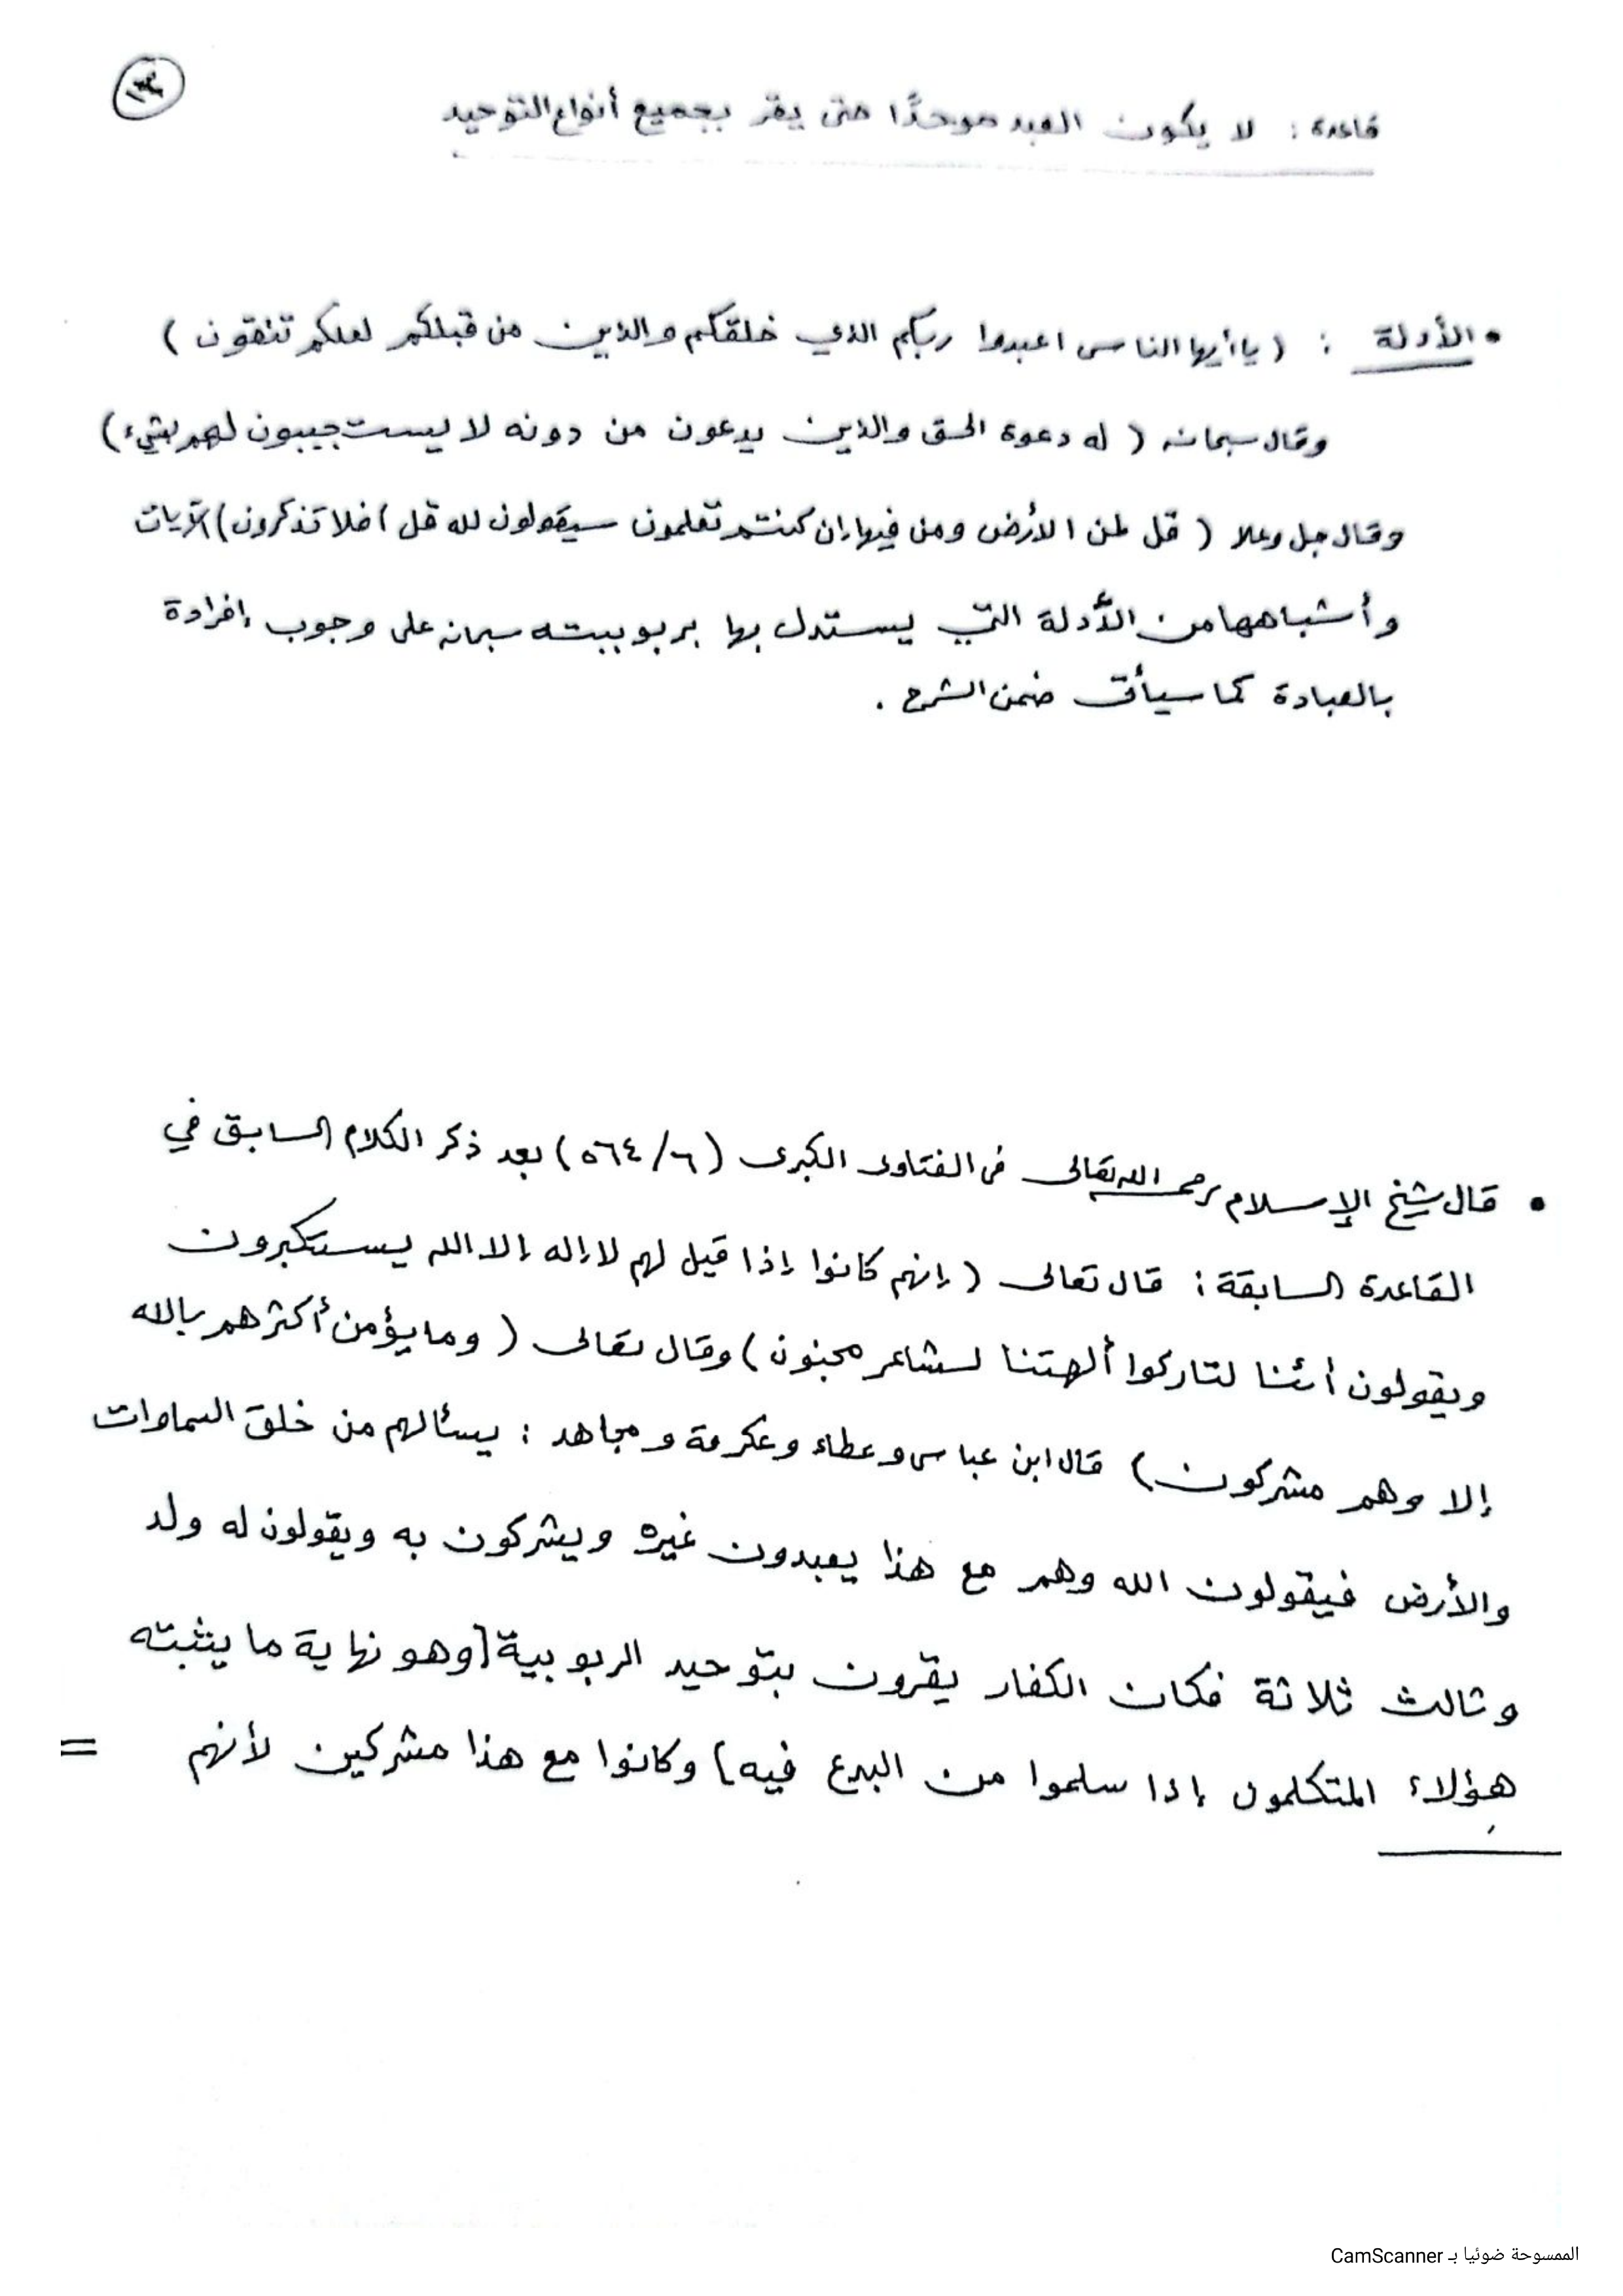 قاعدة : لا يكون العبد موحدًا حتى يقر بجميع أنواع التوحيد
• الأدلة : ( يا أيها الناس اعبدوا ربكم الذي خلقكم والذين من قبلكم لعلكم تتقون )
وقال سبحانه ( له دعوة الحق والذين يدعون من دونه لا يستجيبون لهم بشيء )
وقال جل وعلا ( قل لمن الأرض ومن فيها إن كنتم تعلمون سيقولون لله قل أفلا تذكرون ) الآيات
وأشباهها من الأدلة التي يستدل بها بربوبيته سبحانه على وجوب إفراده
بالعبادة كما سيأتي ضمن الشرح .
• قال شيخ الإسلام رحمه الله تعالى في الفتاوى الكبرى ( ٦/ ٥٦٤ ) بعد ذكر الكلام السابق في
القاعدة السابقة : قال تعالى ( إنهم كانوا إذا قيل لهم لا إله إلا الله يستكبرون
ويقولون أئنا لتاركوا ألهتنا لشاعر مجنون ) وقال تعالى ( وما يؤمن أكثرهم بالله
إلا وهم مشركون ) قال ابن عباس وعطاء وعكرمة ومجاهد : يسئالهم من خلق السماوات
والأرض فيقولون الله وهم مع هذا يعبدون غيره ويشركون به ويقولون له ولد
وثالث ثلاثة فكان الكفار يقرون بتوحيد الربوبية [ وهو نهاية ما يثبته
هؤلاء المتكلمون إذا سلموا من البدع فيه ] وكانوا مع هذا مشركين لأنهم =
الممسوحة ضوئيا بـ CamScanner